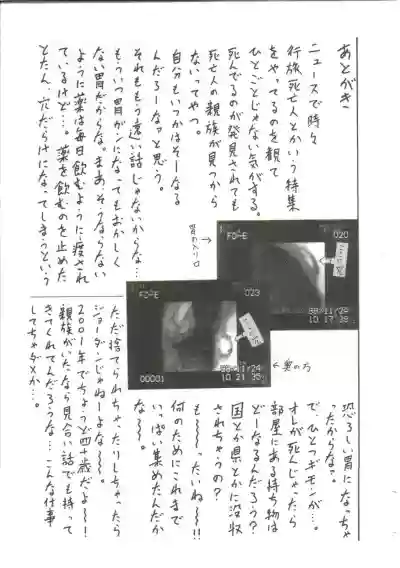 あとがき
ニュースで時々
行旅死亡人とかいう特集
をやってるのを観て
ひとごとじゃない気がする。
死んでるのが発見されても
死亡人の親族が見つから
ないってやつ。
自分もいつかはそーなる
んだろーなァと思う。
それももう遠い話じゃないからな…
もういつ胃ガンになってもおかしく
ない胃だからな。まあ、そうならない
ように薬は毎日飲むように渡され
ているけど…。薬を飲むのを止めた
とたん、穴だらけになってしまうという
胃の入り口
FOPE
020
10 17 39
FOPE
023
00001
10 21 35
奥の方
恐ろしい胃になっちゃ
ったからな?
で、ひとつギモンが…。
オレが死んじゃったら
部屋にある持ち物は
どーなるんだろう?
国とか県とかに没収
されちゃうの?
も〜〜ったいね〜!!
何のためにこれまで
いっぱい集めたんだか
な〜〜。
ただ捨てられちゃったりしちゃったら
ジョーダンじゃねーよな〜〜!
2001年でちょうど四十歳だよ〜〜!
親族がいたなら見合い話でも持って
きてくれてんだろうな…こんな仕事
してちゃダメか…。